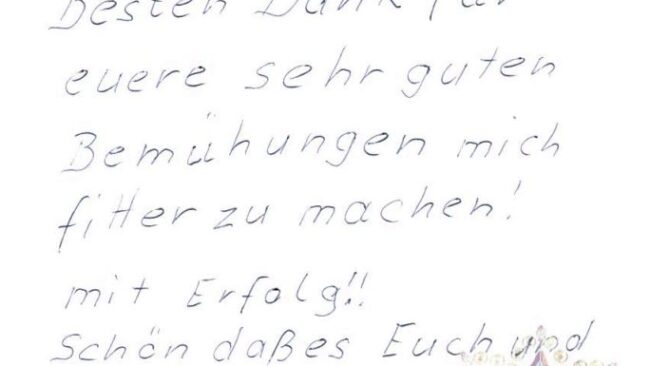 Besten Dank für
euere sehr guten
Bemühungen mich
fitter zu machen!
mit Erfolg!!
Schön daßes Euch und